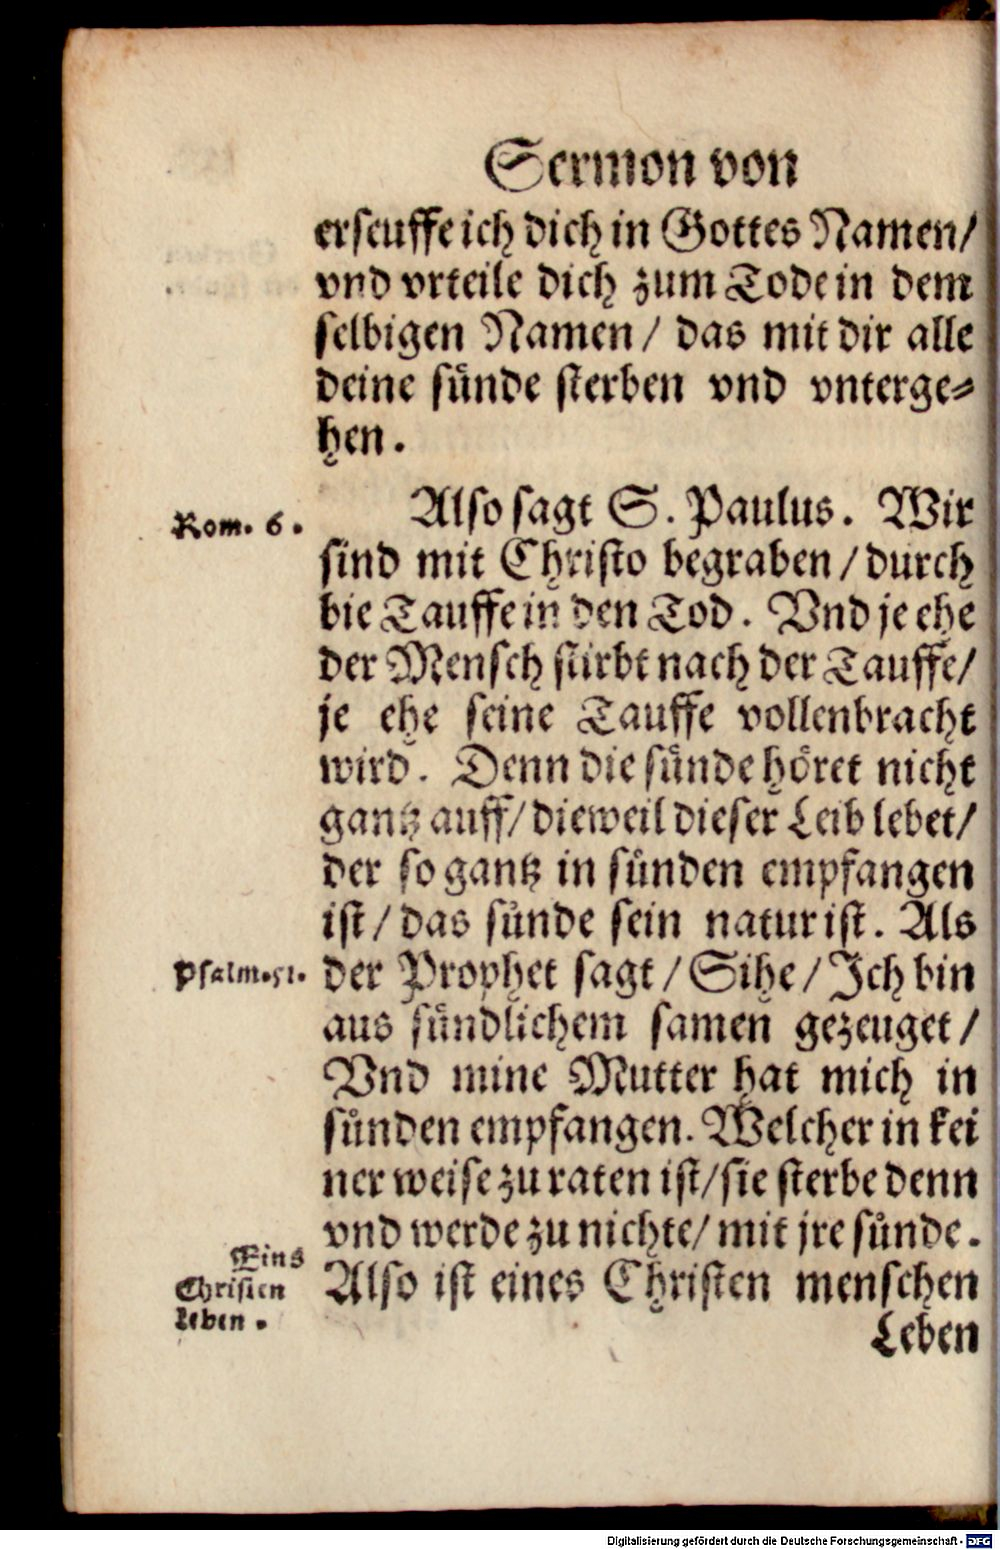 Sermon von
erseuffe ich dich in Gottes Namen/
vnd vrteile dich zum Tode in dem
selbigen Namen/ das mit dir alle
deine sünde sterben vnd vnterge⸗
hen.
Also sagt S. Paulus. Wir
Rom. 6.
sind mit Christo begraben/ durch
die Tauffe in den Tod. Vnd je ehe
der Mensch stirbt nach der Tauffe/
je ehe seine Tauffe vollenbracht
wird. Denn die sünde höret nicht
gantz auff/ dieweil dieser Leib lebet/
der so gantz in sünden empfangen
ist/ das sünde sein natur ist. Als
Psalm. 51.
der Prophet sagt/ Sihe/ Ich bin
aus sündlichem samen gezeuget/
Vnd mine Mutter hat mich in
sünden empfangen. Welcher in kei
ner weise zu raten ist/ sie sterbe denn
vnd werde zu nichte/ mit jre sünde.
Eins
Christen
Leben.
Also ist eines Christen menschen
Leben
Digitalisierung gefördert durch die Deutsche Forschungsgemeinschaft - DFG